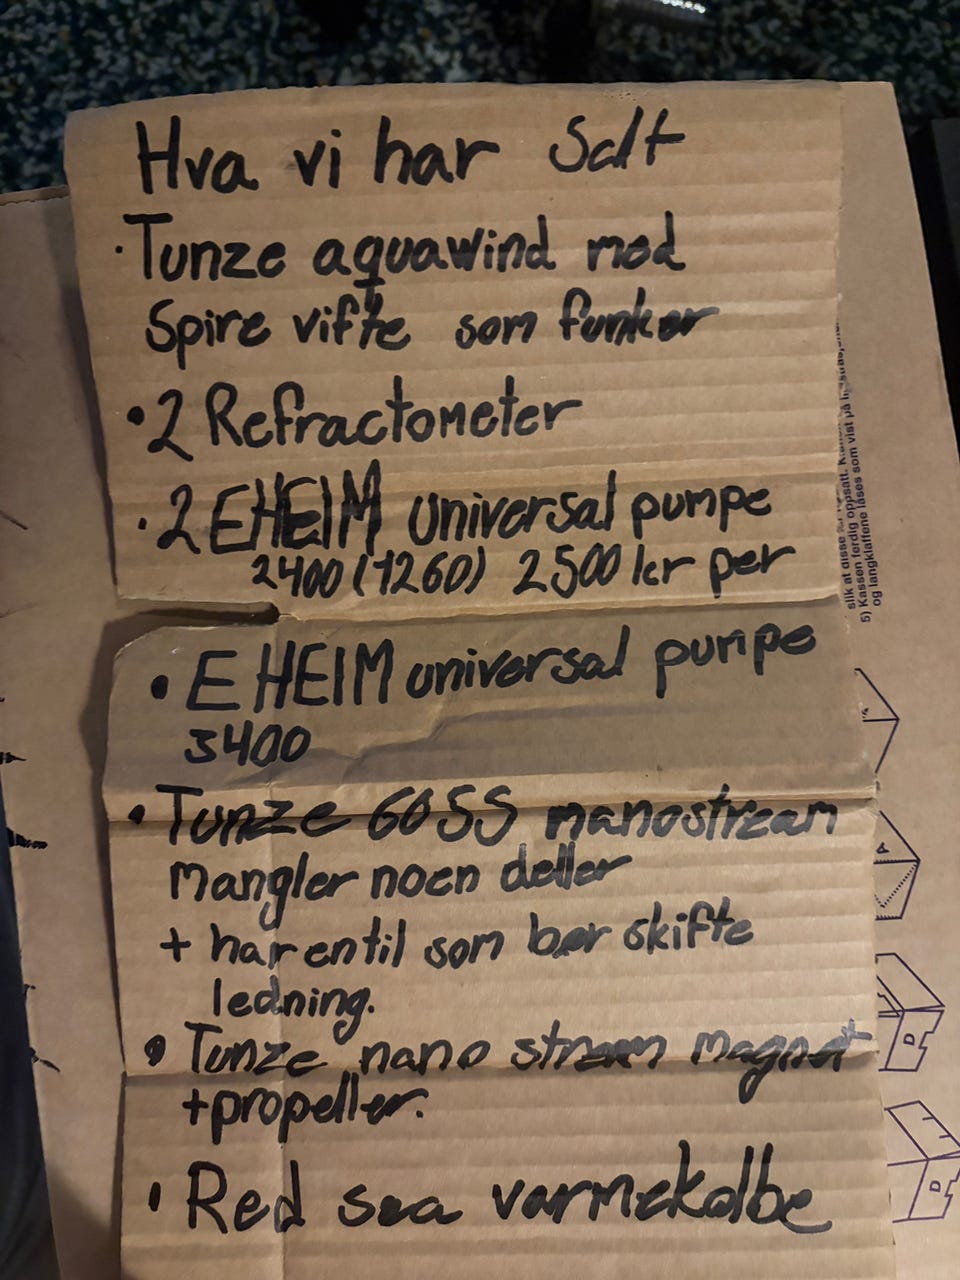 Hva vi har Salt
·Tunze aquawind med
Spire vifte som funker
·2 Refractometer
·2 EHEIM universal pumpe
2400 (1260) 2500 kr per
·EHEIM universal pumpe
3400
·Tunze 6055 nanostream
Mangler noen deller
+ har en til som bør skifte
ledning.
·Tunze nano stream magnet
+propeller.
·Red sea varmekolbe
slik at disse
5) Kassen ferdig oppsatt.
og langklaffene låses som vist på